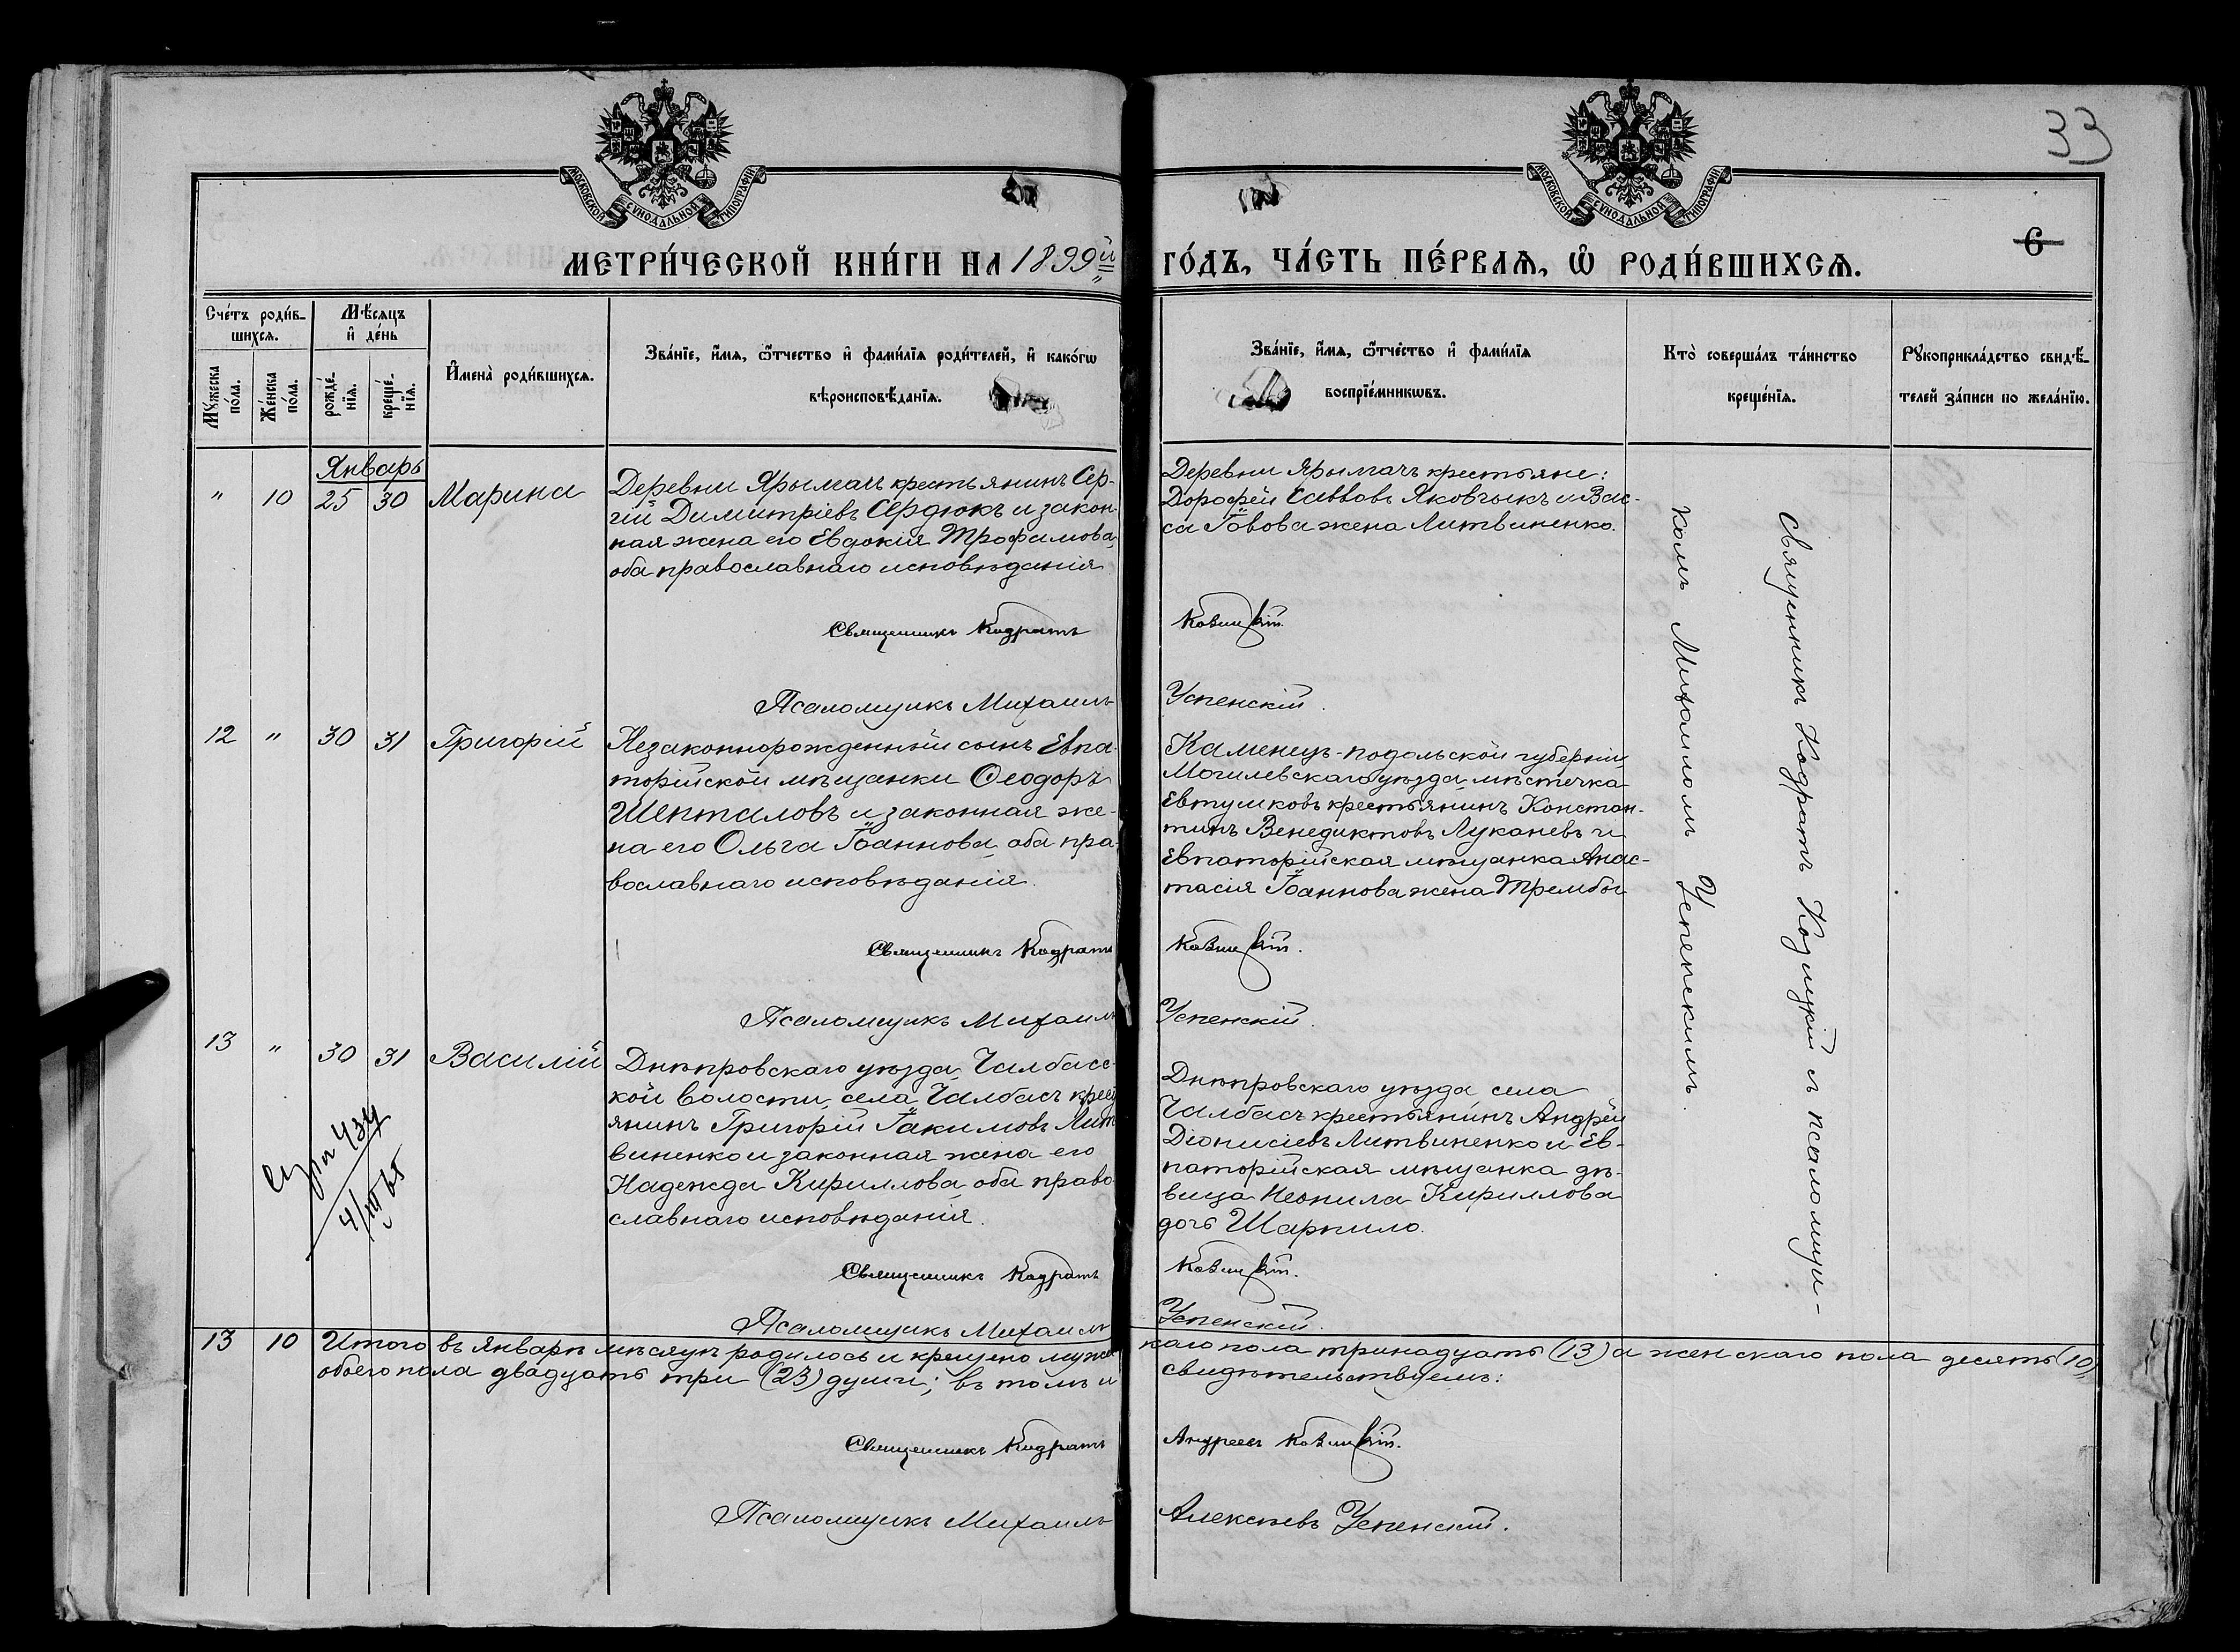 МОСКОВСКОЙ СѴНОДАЛЬНОЙ ТИПОГРАФІИ
МОСКОВСКОЙ СѴНОДАЛЬНОЙ ТИПОГРАФІИ
33
6
МЕТРИ́ЧЕСКОЙ КНИ́ГИ НА 1899й ГО́ДЪ, ЧА́СТЬ ПЕ́РВАѦ, Ѡ҆ РОДИ́ВШИХСѦ.
Сче́тъ роди́в-
шихсѧ.
Мꙋ́жеска по́ла.
Же́нска по́ла.
Мѣ́сѧцъ
и҆ де́нь
рожде́-
нїѧ.
креще́-
нїѧ.
И҆мена̀ роди́вшихсѧ.
Зва́нїе, и҆́мѧ, ѻ҆́тчество и҆ фами́лїѧ роди́телей, и҆ како́гѡ
вѣроисповѣ́данїѧ.
Зва́нїе, и҆́мѧ, ѻ҆́тчество и҆ фами́лїѧ
воспрїе́мникѡвъ.
Кто̀ соверша́лъ та́инство
креще́нїѧ.
Рꙋкоприкла́дство свидѣ́-
телей за́писи по жела́нїю.
Январь
" 10 25 30 Марина
Деревни Ярылгачъ крестьянинъ Сер-
гій Димитріевъ Сердюкъ и закон-
ная жена его Евдокія Трофимова,
оба православнаго исповѣданія
Священникъ Кодратъ
Псаломщикъ Михаилъ
Деревни Ярылгачъ крестьяне:
Дорофей Савовъ Яковчыкъ и Вас-
са Іовова жена Литвиненко.
Козицкій.
Успенскій.
12 " 30 31 Григорій
Незаконнорожденный сынъ Евпа-
торійской мѣщанки Ѳеодоръ
Шепталовъ и законная же-
на его Ольга Іоаннова, оба пра-
вославнаго исповѣданія.
Священникъ Кодратъ
Псаломщикъ Михаилъ
Каменецъ-подольской губерніи,
Могилевскаго уѣзда, мѣстечка
крестьянинъ Констан-
тинъ Венедиктовъ Луканевъ и
Евпаторійская мѣщанка Анас-
тасія Іоаннова жена Трембы
Козицкій.
Успенскій.
13 " 30 31 Василій
Днѣпровскаго уѣзда, Чалбасс-
кой волости, села Чалбасъ крест
янинъ Григорій Іакимовъ Лит
виненко и законная жена его
Надежда Кириллова, оба право-
славнаго исповѣданія.
Священникъ Кодратъ
Псаломщикъ Михаилъ
Днѣпровскаго уѣзда села
Чалбасъ крестьянинъ Андрей
Діонисіевъ Литвиненко и Ев-
паторійская мѣщанка дѣ-
вица Неонила Кириллова
дочь Шарпило.
Козицкій.
Успенскій.
434
4/III 65
Священникъ Кодратъ Козицкій съ псаломщи-
комъ Михаиломъ Успенскимъ.
13 10 Итого въ Январѣ мѣсяцѣ родилось и крещено мужес каго пола тринадцать (13) а женскаго пола десять (10)
обоего пола двадцать три (23) души; въ томъ и свидѣтельствуемъ:
Священникъ Кодратъ Андреевъ Козицкій.
Псаломщикъ Михаилъ Алексѣевъ Успенскій.